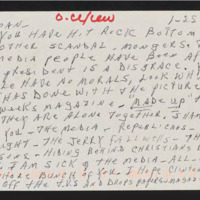 O.C/Lew
1-25
DAN-
YOU HAVE HIT ROCK BOTTOM
OTHER SCANDAL - MONGERS T
MEDIA PEOPLE HAVE BEEN AF
PRESIDENT IS A DISGRACE. Y
HAVE NO MORALS, LOOK WH
HAS DONE WITH THE PICTURE
WEEK'S MAGAZINE - MADE UP T
THEY ARE ALONE TOGETHER, SHAM
YOU - THE MEDIA - REPUBLICANS -
IGHT - THE JERRY FALLWELLS - TH
HIDING BEHIND CHRISTIANS B
I AM SICK OF THE MEDIA - ALL -
BUNCH OF YOU. I HOPE CLINTON
OFF THE T.V.S AND DROPS PAPERS & MAGAZ